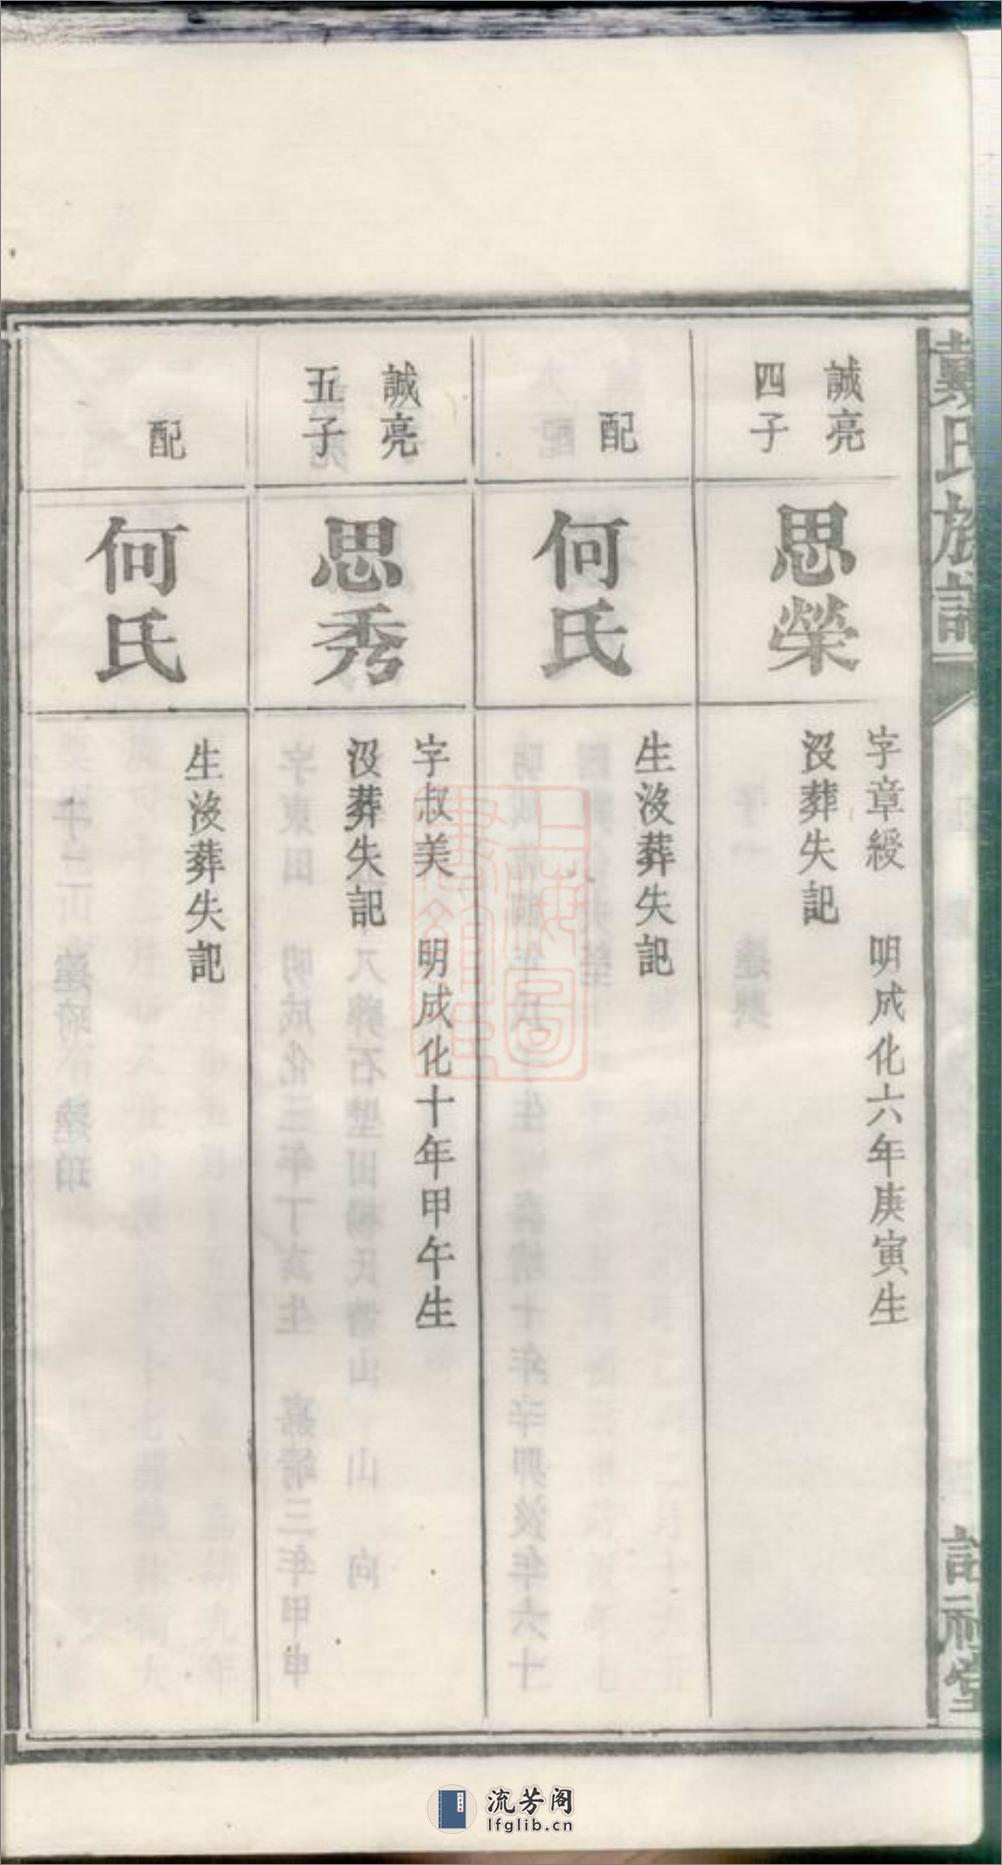 戴氏族譜
誠亮
四子
思榮
字章綬　明成化六年庚寅生
沒葬失記
配
何氏
生沒葬失記
誠亮
五子
思秀
字叔美　明成化十年甲午生
沒葬失記
配
何氏
生沒葬失記
流芳阁
lfglib.cn